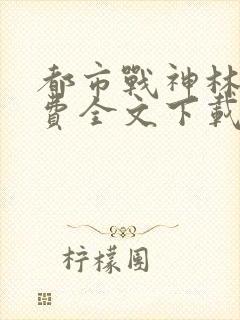 都市戰神林
費全文下載
柠檬園